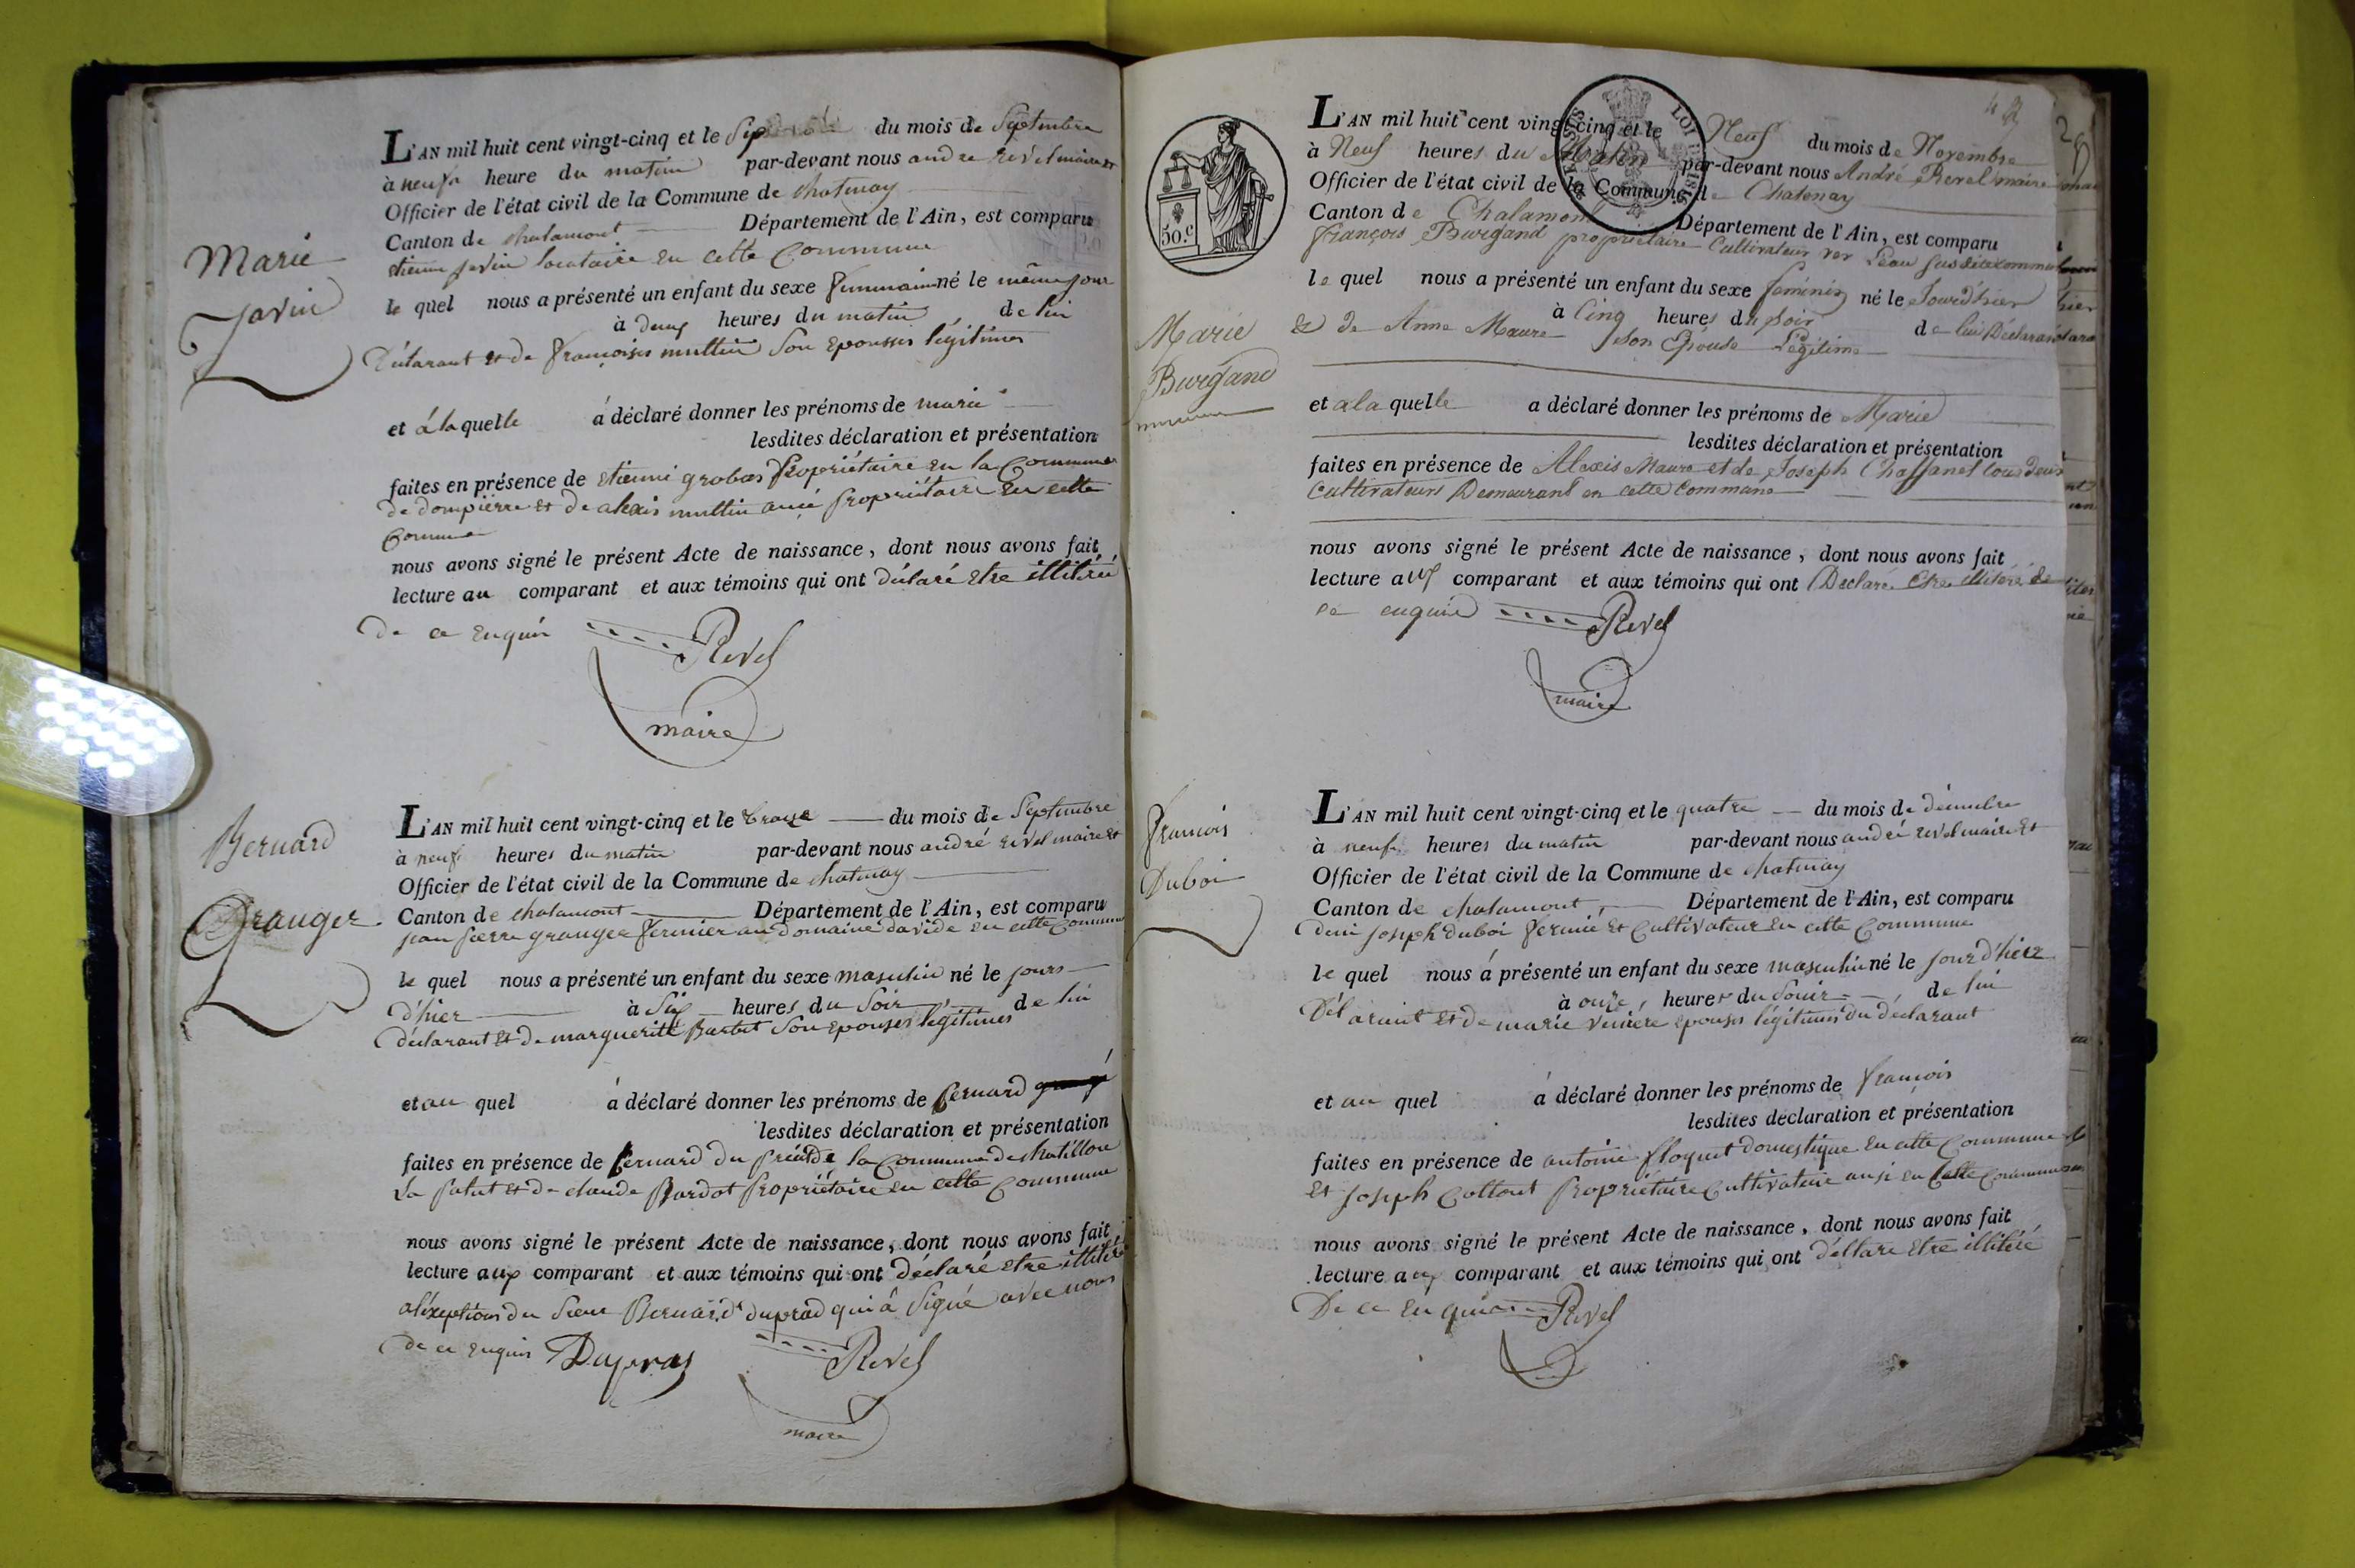 Marie
Javin
L'AN mil huit cent vingt-cinq et le du mois de Septembre
à neufs heure du matin par-devant nous andre revel maire et
Officier de l'état civil de la Commune de chatenay
Canton de chalamont Département de l'Ain, est comparu
etienne javin locataire en cette Commune
le quel nous a présenté un enfant du sexe né le même jour
à deux heures du matin de lui
Déclarant et de françoises muttin Son epousses légitimes
et á la quelle á déclaré donner les prénoms de marie
lesdites déclaration et présentation
faites en présence de etienne grobas Propriétaire en la Commune
de dompierre et de alexis muttin propriétaire en cette
Commune
nous avons signé le présent Acte de naissance, dont nous avons fait
lecture au comparant et aux témoins qui ont déclaré etre illitéré
de ce enquis Revel
maire
Bernard
Granger
L'AN mil huit cent vingt-cinq et le traize du mois de Septembre
à neufs heures du matin par-devant nous andré revel maire et
Officier de l'état civil de la Commune de chatenay
Canton de chalamont Département de l'Ain, est comparu
jean pierre granger fermier au domaine david en cette Commune
le quel nous a présenté un enfant du sexe masculin né le jours
d'hier à Six heures du Soir de lui
déclarant et de marguerite Son epouses légitimes
et au quel á déclaré donner les prénoms de bernard
lesdites déclaration et présentation
faites en présence de bernard du de la Commune de chatillon
la palut et de claude Bardot propriétaire en cette Commune
nous avons signé le présent Acte de naissance, dont nous avons fait
lecture aux comparant et aux témoins qui ont déclaré etre illitéré
aléxeption du Sieur Bernard duprad qui á Signé avec nous
de ce enquis Duperas Revel
maire
50.c
Marie
Burgand
L'AN mil huit cent vingt-cinq et le Neuf du mois de Novembre
à Neuf heures du Matin par-devant nous André Revel maire
Officier de l'état civil de la Commune de Chatenay
Canton de Chalamont Département de l'Ain, est comparu
françois Burgand propriétaire Cultivateur
le quel nous a présenté un enfant du sexe féminin né le Jourd'hier
à Cinq heures du soir de lui Déclarant
& de Anne Maure son Épouse Légitime
et a la quelle a déclaré donner les prénoms de Marie
lesdites déclaration et présentation
faites en présence de Alexis Maure et de Joseph Chaffanet tous deux
Cultivateurs Demeurant en cette Commune
nous avons signé le présent Acte de naissance, dont nous avons fait
lecture aux comparant et aux témoins qui ont Déclaré Etre illitéré de
ce enquis Revel
maire
francois
Duboi
L'AN mil huit cent vingt-cinq et le quatre du mois de décembre
à neufs heures du matin par-devant nous andré revel maire et
Officier de l'état civil de la Commune de chatenay
Canton de chalamont, Département de l'Ain, est comparu
joseph duboi fermié et Cultivateur en cette Commune
le quel nous á présenté un enfant du sexe masculin né le jour d'hier
à onze heures du Soir de lui
Délarant et de marie epouses légitimes du déclarant
et au quel á déclaré donner les prénoms de francois
lesdites déclaration et présentation
faites en présence de antoine floquet domestique en cette Commune
et joseph Cottout Propriétaire Cultivateur ausi en Cette Commune
nous avons signé le présent Acte de naissance, dont nous avons fait
lecture aux comparant et aux témoins qui ont déllaré etre illitéré
De ce enquis Revel